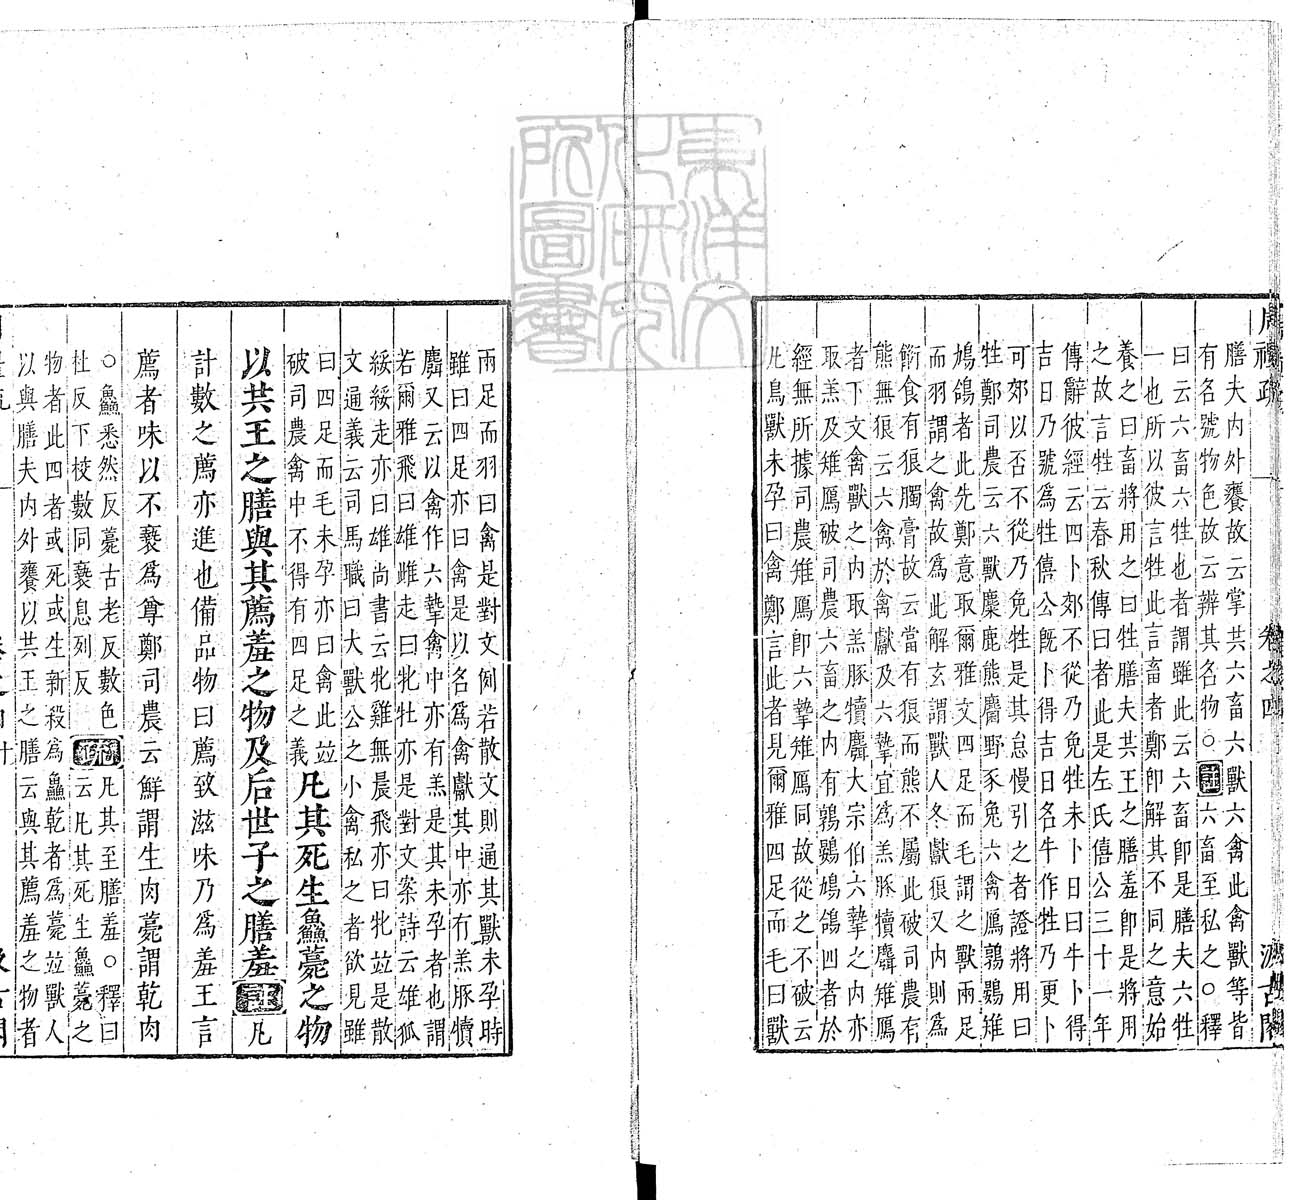 周禮疏 卷之四 汲古閣
膳夫內外饔故云掌共六畜六獸六禽此禽獸等皆
有名號物色故云辨其名物○註六畜至私之○釋
曰云六畜六牲也者謂雖此云六畜卽是膳夫六牲
一也所以彼言牲此言畜者鄭卽解其不同之意始
養之曰畜將用之曰牲膳夫共王之膳羞卽是將用
之故言牲云春秋傳曰者此是左氏僖公三十一年
傳辭彼經云四卜郊不從乃免牲未卜日曰牛卜得
吉日乃號爲牲僖公旣卜得吉日名牛作牲乃更卜
可郊以否不從乃免牲是其怠慢引之者證將用曰
牲鄭司農云六獸麋鹿熊麕野豕兔六禽鴈鶉鷃雉
鳩鴿者此先鄭意取爾雅文四足而毛謂之獸兩足
而羽謂之禽故爲此解玄謂獸人冬獻狼又內則爲
餰食有狼臅膏故云當有狼而熊不屬此破司農有
熊無狼云六禽於禽獻及六摯宜爲羔豚犢麛雉鴈
者下文禽獸之內取羔豚犢麛大宗伯六摯之內亦
取羔及雉鴈破司農六畜之內有鶉鷃鳩鴿四者於
經無所據司農雉鴈卽六摯雉鴈同故從之不破云
凡鳥獸未孕曰禽鄭言此者見爾雅四足而毛曰獸
兩足而羽曰禽是對文例若散文則通其獸未孕時
雖曰四足亦曰禽是以名爲禽獻其中亦有羔豚犢
麛又云以禽作六摯禽中亦有羔是其未孕者也謂
若爾雅飛曰雄雌走曰牝牡亦是對文案詩云雄狐
綏綏走亦曰雄尚書云牝雞無晨飛亦曰牝竝是散
文通義云司馬職曰大獸公之小禽私之者欲見雖
曰四足而毛未孕亦曰禽此竝
破司農禽中不得有四足之義
凡其死生鱻薧之物
以共王之膳與其薦羞之物及后世子之膳羞註凡
計數之薦亦進也備品物曰薦致滋味乃爲羞王言
薦者味以不褻爲尊鄭司農云鮮謂生肉薧謂乾肉
○鱻悉然反薧古老反數色
杜反下校數同褻息列反
疏凡其至膳羞○釋曰
云凡其死生鱻薧之
物者此四者或死或生新殺爲鱻乾者爲薧竝獸人
以與膳夫內外饔以共王之膳云與其薦羞之物者